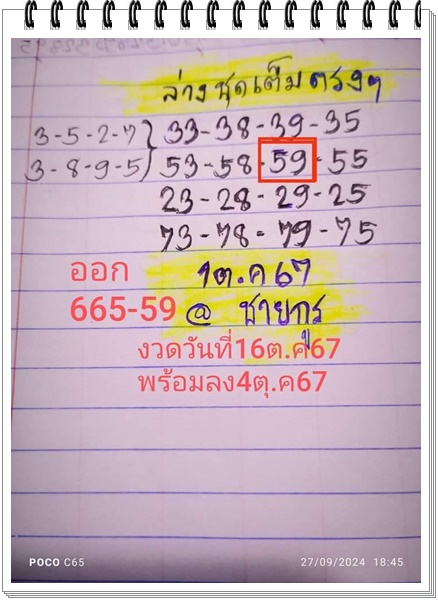 ล่างชุดเต็มตรงๆ
3-5-2-7} 33-38-39-35
3-8-9-5) 53-58-59-55
23-28-29-25
73-78-79-75
ออก 1ต.ค67
665-59 @ ชายกรู
งวดวันที่16ต.ค67
พร้อมลง4ตุ.ค67
POCO C65 27/09/2024 18:45